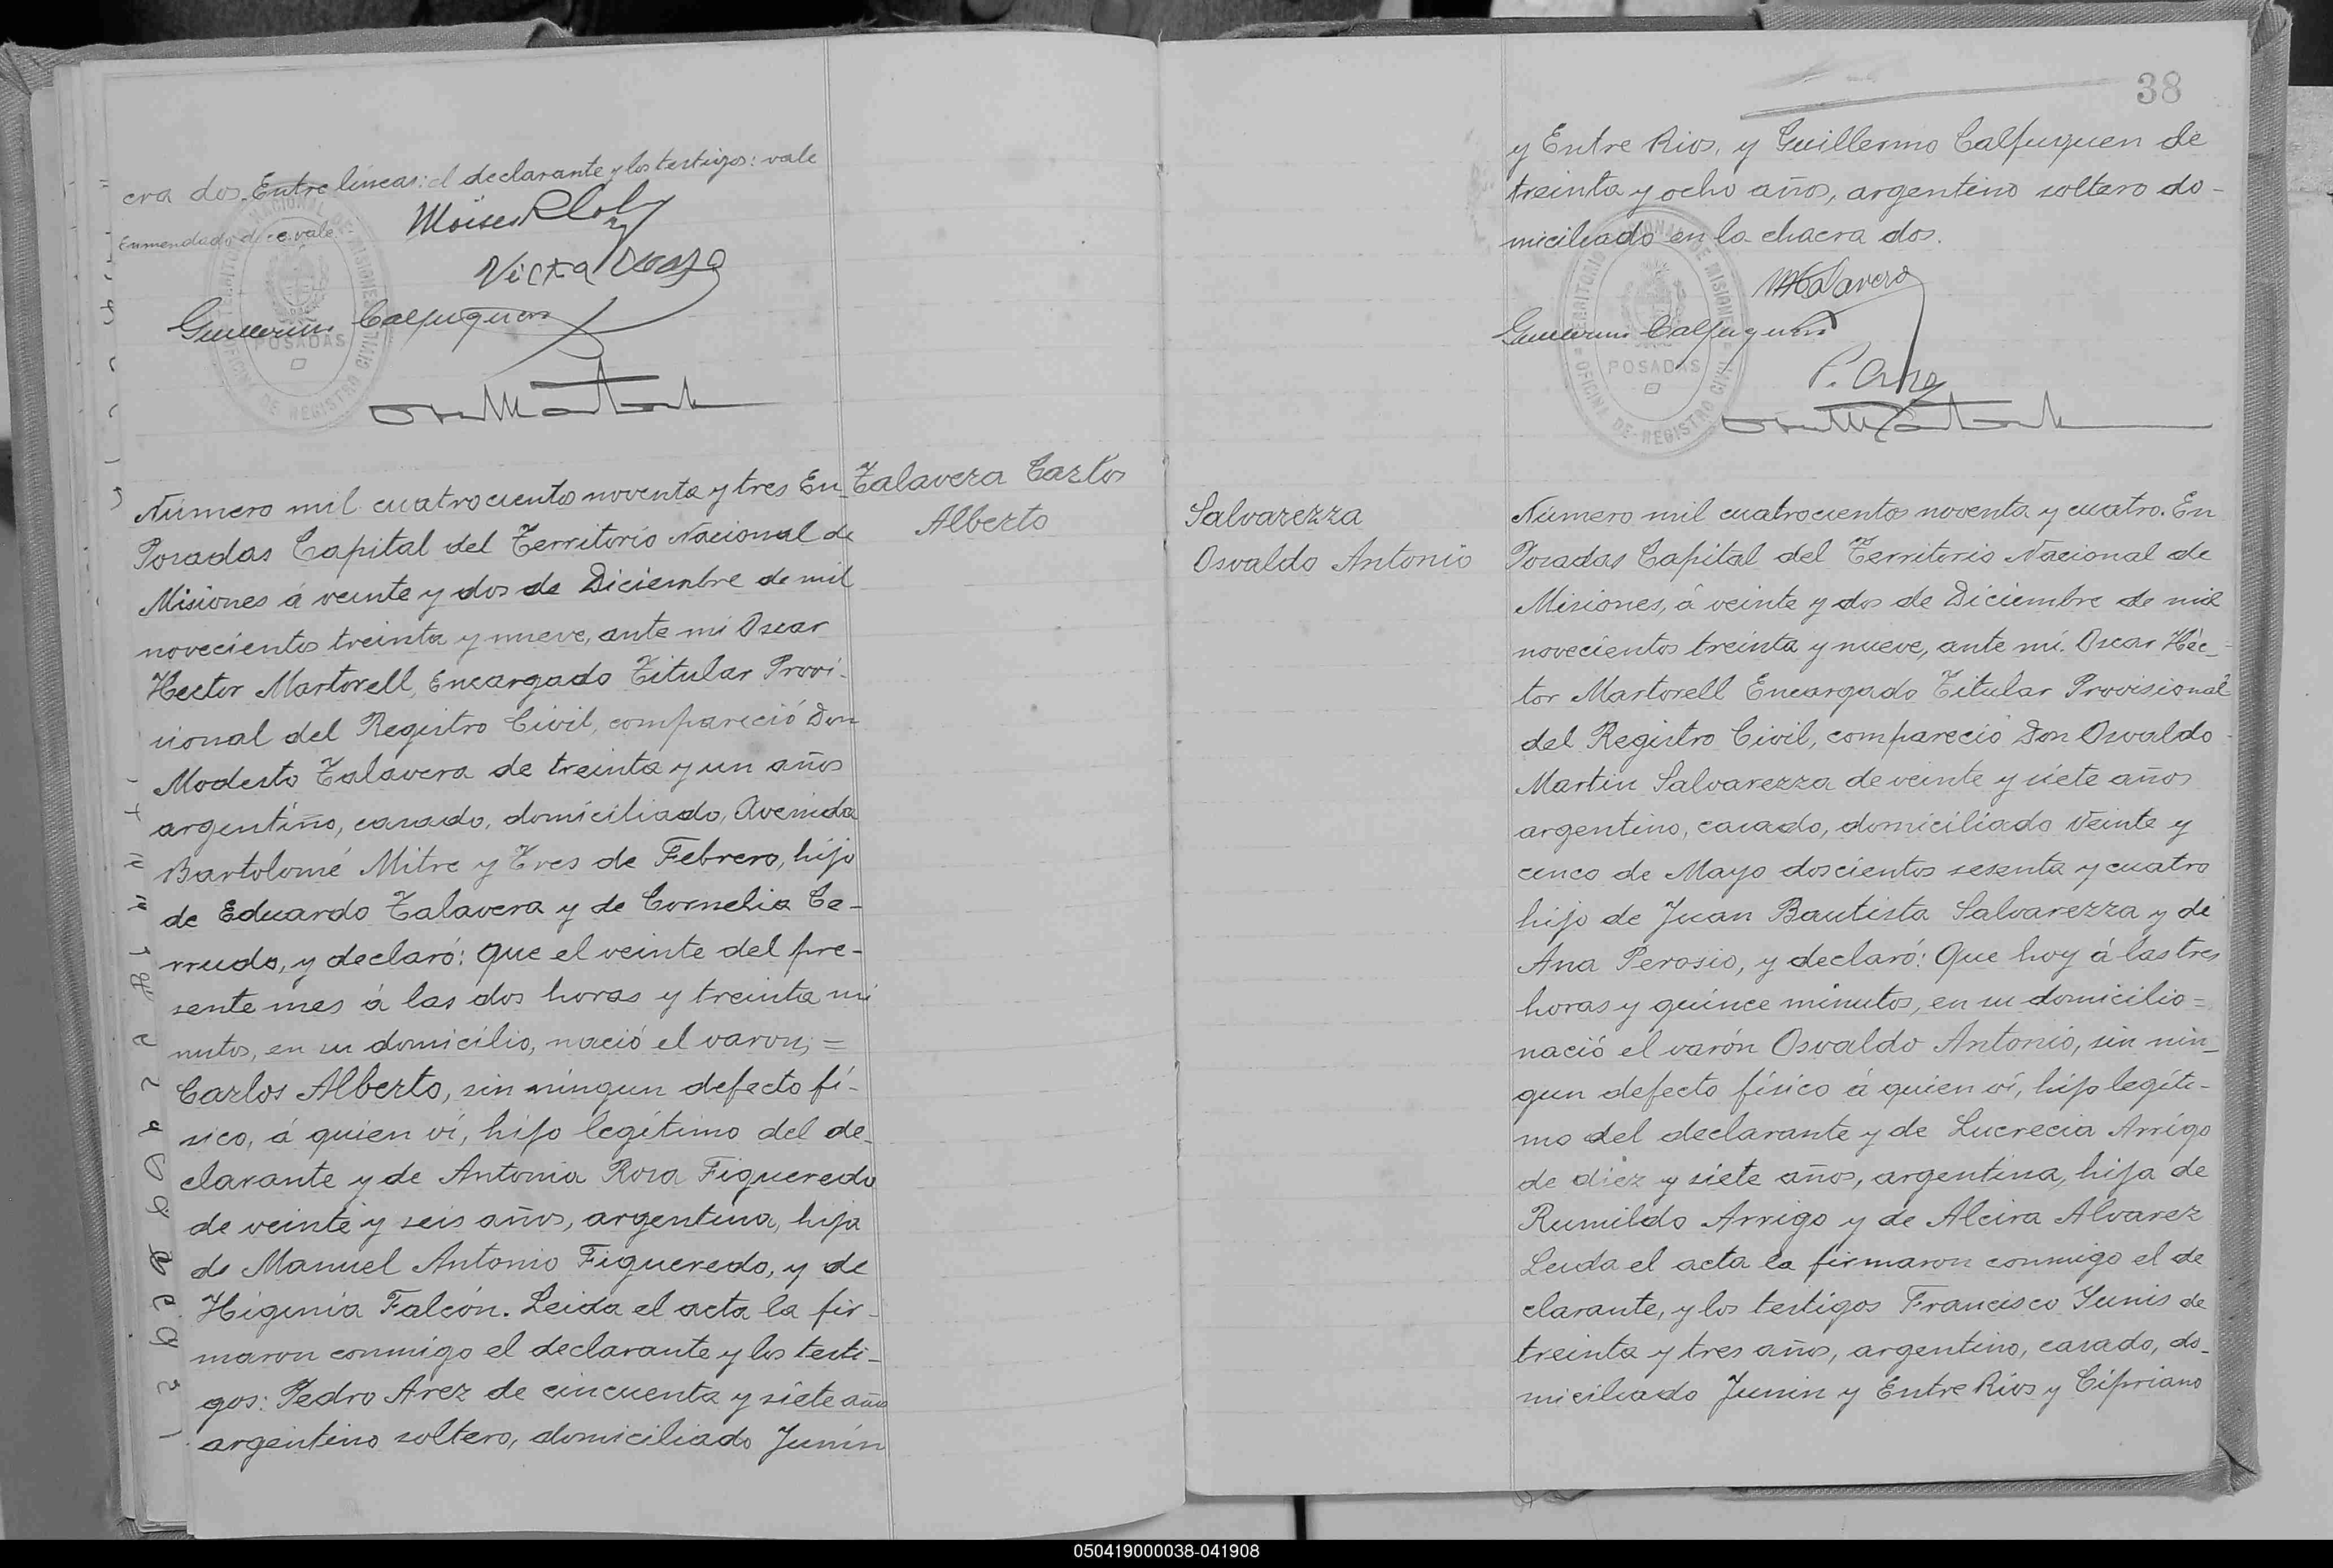 era dos. Entre líneas: el declarante y los testigos: vale
Enmendado: dice: vale
Guillermo Calfuquen
TERRITORIO NACIONAL DE MISIONES
POSADAS
OFICINA DE REGISTRO CIVIL
Talavera Carlos
Alberto
Número mil cuatrocientos noventa y tres En
Posadas Capital del Territorio Nacional de
Misiones á veinte y dos de Diciembre de mil
novecientos treinta y nueve, ante mi Oscar
Hector Martorell, Encargado Titular Provi-
sional del Registro Civil, compareció Don
Modesto Talavera de treinta y un años
argentino, casado, domiciliado, Avenida
Bartolomé Mitre y Tres de Febrero, hijo
de Eduardo Talavera y de Cornelia Ce-
rrudo, y declaró: Que el veinte del pre-
sente mes á las dos horas y treinta mi
nutos, en su domicilio, nació el varon, =
Carlos Alberto, sin ningun defecto fí-
sico, á quien ví, hijo legítimo del de-
clarante y de Antonia Rosa Figueredo
de veinte y seis años, argentina, hija
de Manuel Antonio Figueredo, y de
Higinia Falcón. Leida el acta la fir-
maron conmigo el declarante y los testi-
gos: Pedro Arez de cincuenta y siete años
argentino soltero, domiciliado Junín
38
y Entre Rios, y Guillermo Calfuquen de
treinta y ocho años, argentino soltero do-
miciliado en la chacra dos.
MTalavera
Guillermo Calfuquen
TERRITORIO NACIONAL DE MISIONES
POSADAS
OFICINA DE REGISTRO CIVIL
Salvarezza
Osvaldo Antonio
Número mil cuatrocientos noventa y cuatro. En
Posadas Capital del Territorio Nacional de
Misiones, á veinte y dos de Diciembre de mil
novecientos treinta y nueve, ante mí. Oscar Héc-
tor Martorell Encargado Titular Provisional
del Registro Civil, compareció Don Osvaldo
Martin Salvarezza de veinte y siete años
argentino, casado, domiciliado Veinte y
cinco de Mayo doscientos sesenta y cuatro
hijo de Juan Bautista Salvarezza y de
Ana Perosio, y declaró: Que hoy á las tres
horas y quince minutos, en su domicilio =
nació el varón Osvaldo Antonio, sin nin-
gun defecto físico á quien ví, hijo legíti-
mo del declarante y de Lucrecia Arrigo
de diez y siete años, argentina, hija de
Rumildo Arrigo y de Alcira Alvarez
Leida el acta la firmaron conmigo el de
clarante, y los testigos Francisco Yunis de
treinta y tres años, argentino, casado, do-
miciliado Junin y Entre Rios y Cipriano
050419000038-041908